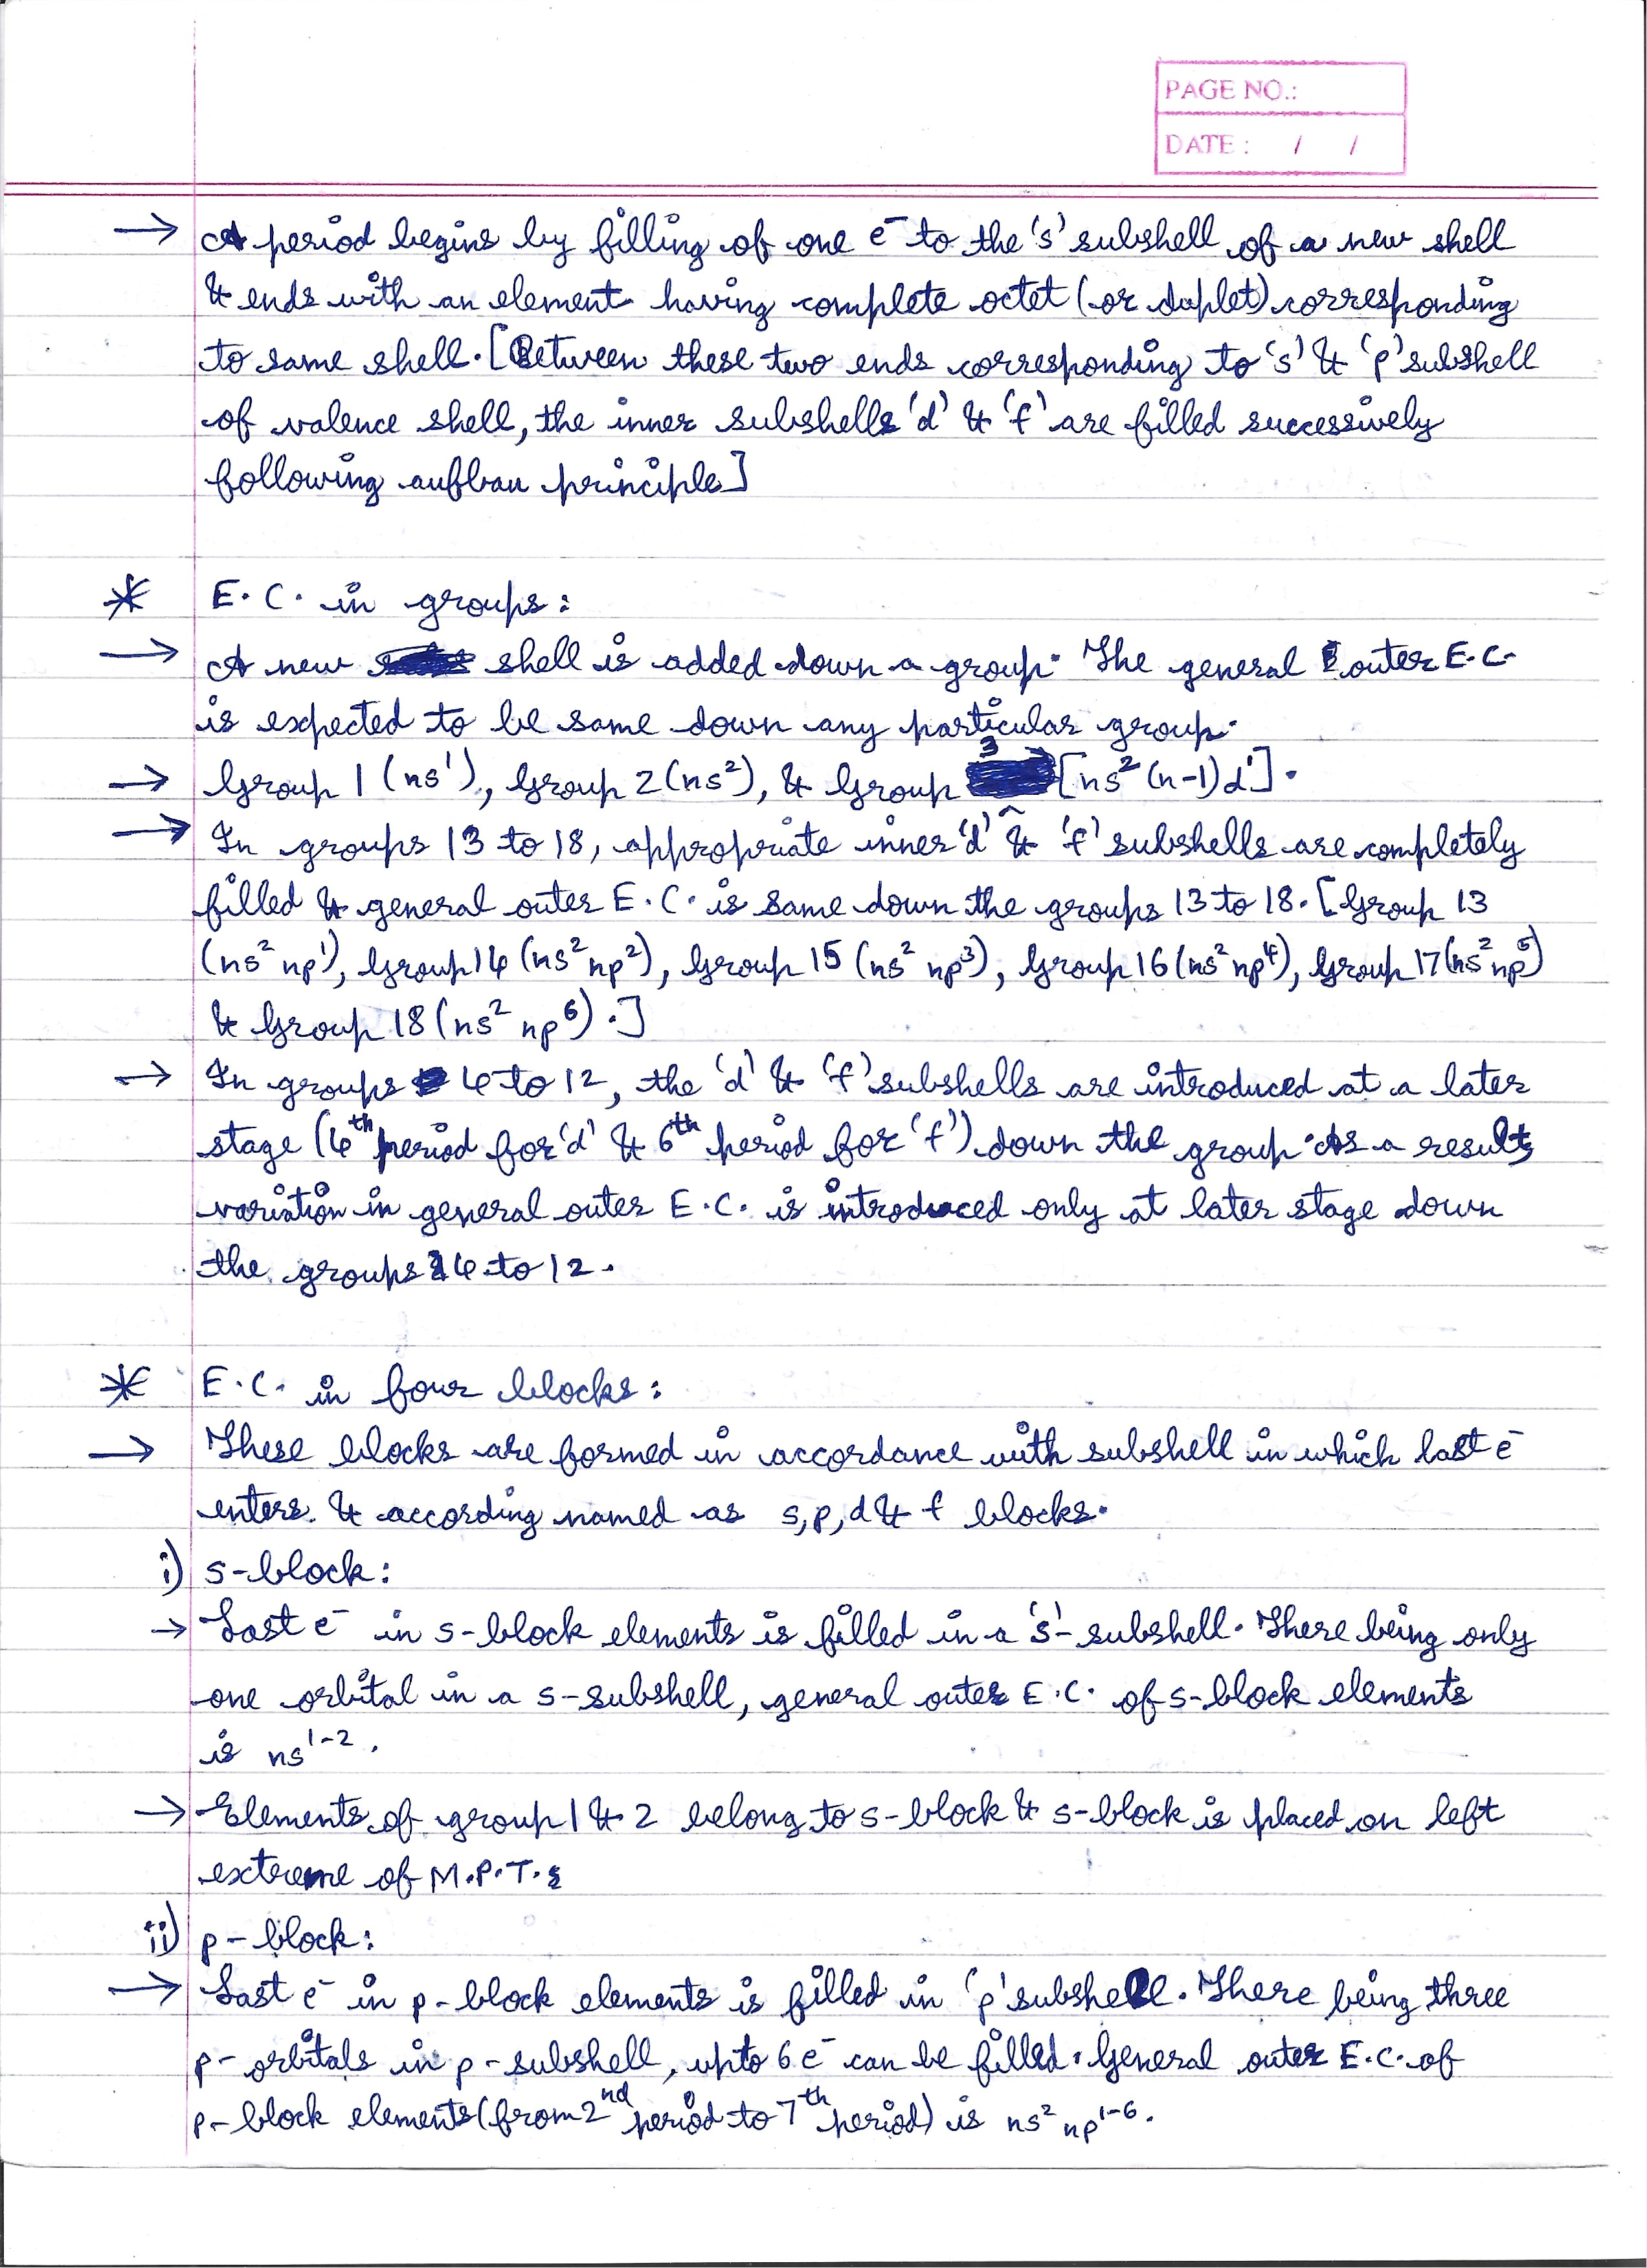 PAGE NO.:
DATE : / /
→ A period begins by filling of one e⁻ to the 's' subshell of a new shell
& ends with an element having complete octet (or duplet) corresponding
to same shell. [Between these two ends corresponding to 's' & 'p' subshell
of valence shell, the inner subshells 'd' & 'f' are filled successively
following aufbau principle]
* E.C. in groups:
→ A new shell is added down a group. The general outer E.C.
is expected to be same down any particular group.
→ Group 1 (ns¹), Group 2 (ns²), & Group 3 [ns² (n-1)d¹].
→ In groups 13 to 18, appropriate inner 'd' & 'f' subshells are completely
filled & general outer E.C. is same down the groups 13 to 18. [Group 13
(ns² np¹), Group 14 (ns² np²), Group 15 (ns² np³), Group 16 (ns² np⁴), Group 17 (ns² np⁵)
& Group 18 (ns² np⁶).]
→ In groups 4 to 12, the 'd' & 'f' subshells are introduced at a later
stage (4th period for 'd' & 6th period for 'f') down the group. As a result,
variation in general outer E.C. is introduced only at later stage down
the groups 4 to 12.
* E.C. in four blocks:
→ These blocks are formed in accordance with subshell in which last e⁻
enters & according named as s, p, d & f blocks.
i) s-block:
→ Last e⁻ in s-block elements is filled in a 's'-subshell. There being only
one orbital in a s-subshell, general outer E.C. of s-block elements
is ns¹⁻².
→ Elements of group 1 & 2 belong to s-block & s-block is placed on left
extreme of M.P.T.
ii) p-block:
→ Last e⁻ in p-block elements is filled in 'p' subshell. There being three
p-orbitals in p-subshell, upto 6 e⁻ can be filled. General outer E.C. of
p-block elements (from 2nd period to 7th period) is ns² np¹⁻⁶.